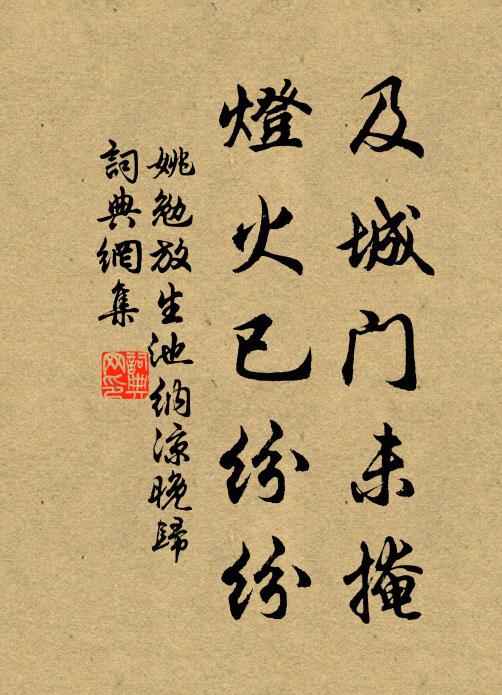 及城门未掩
燈火已纷纷
姚勉放生池纳凉晚歸
詞典網集
詞典网印